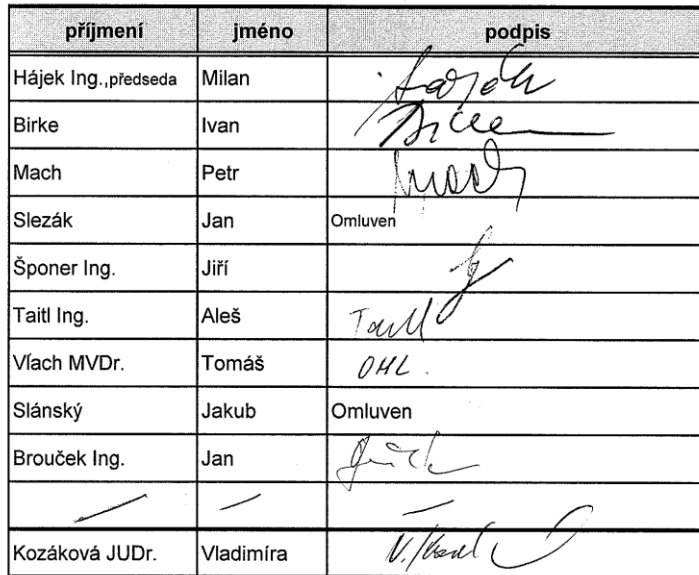 příjmení jméno podpis
Hájek Ing.,předseda Milan
Birke Ivan
Mach Petr
Slezák Jan Omluven
Šponer Ing. Jiří
Taitl Ing. Aleš
Vlach MVDr. Tomáš OHL.
Slánský Jakub Omluven
Brouček Ing. Jan
Kozáková JUDr. Vladimíra